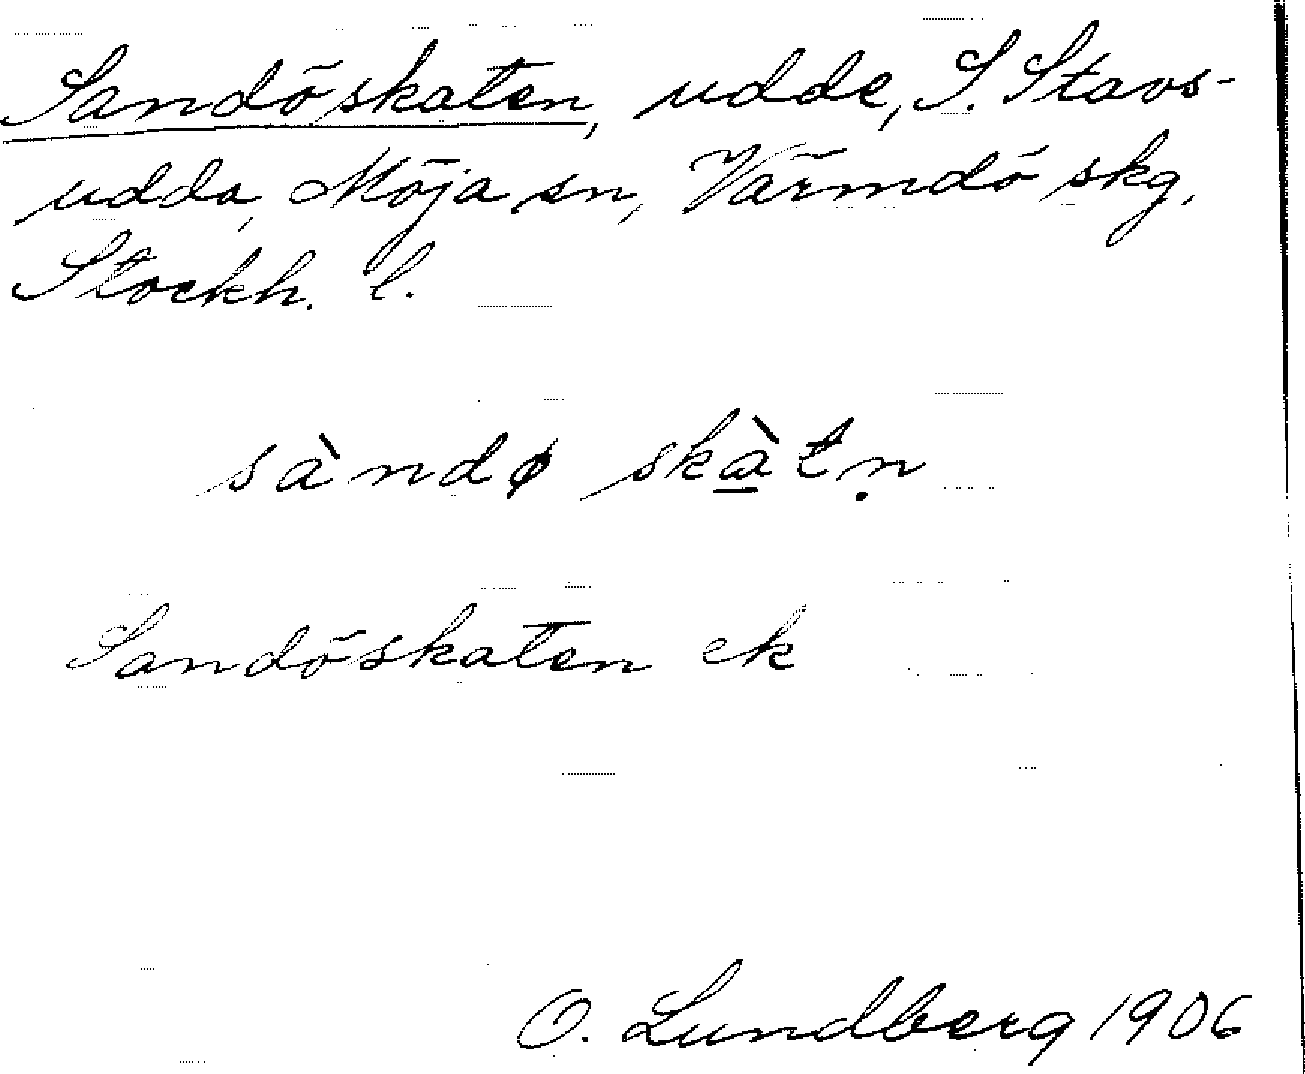 Sandöskaten, udde, S. Stavs-
udda, Möja sn, Värmdö skg,
Stockh. l.
sàndø skà̱tṇ
Sandöskaten ek
O. Lundberg 1906